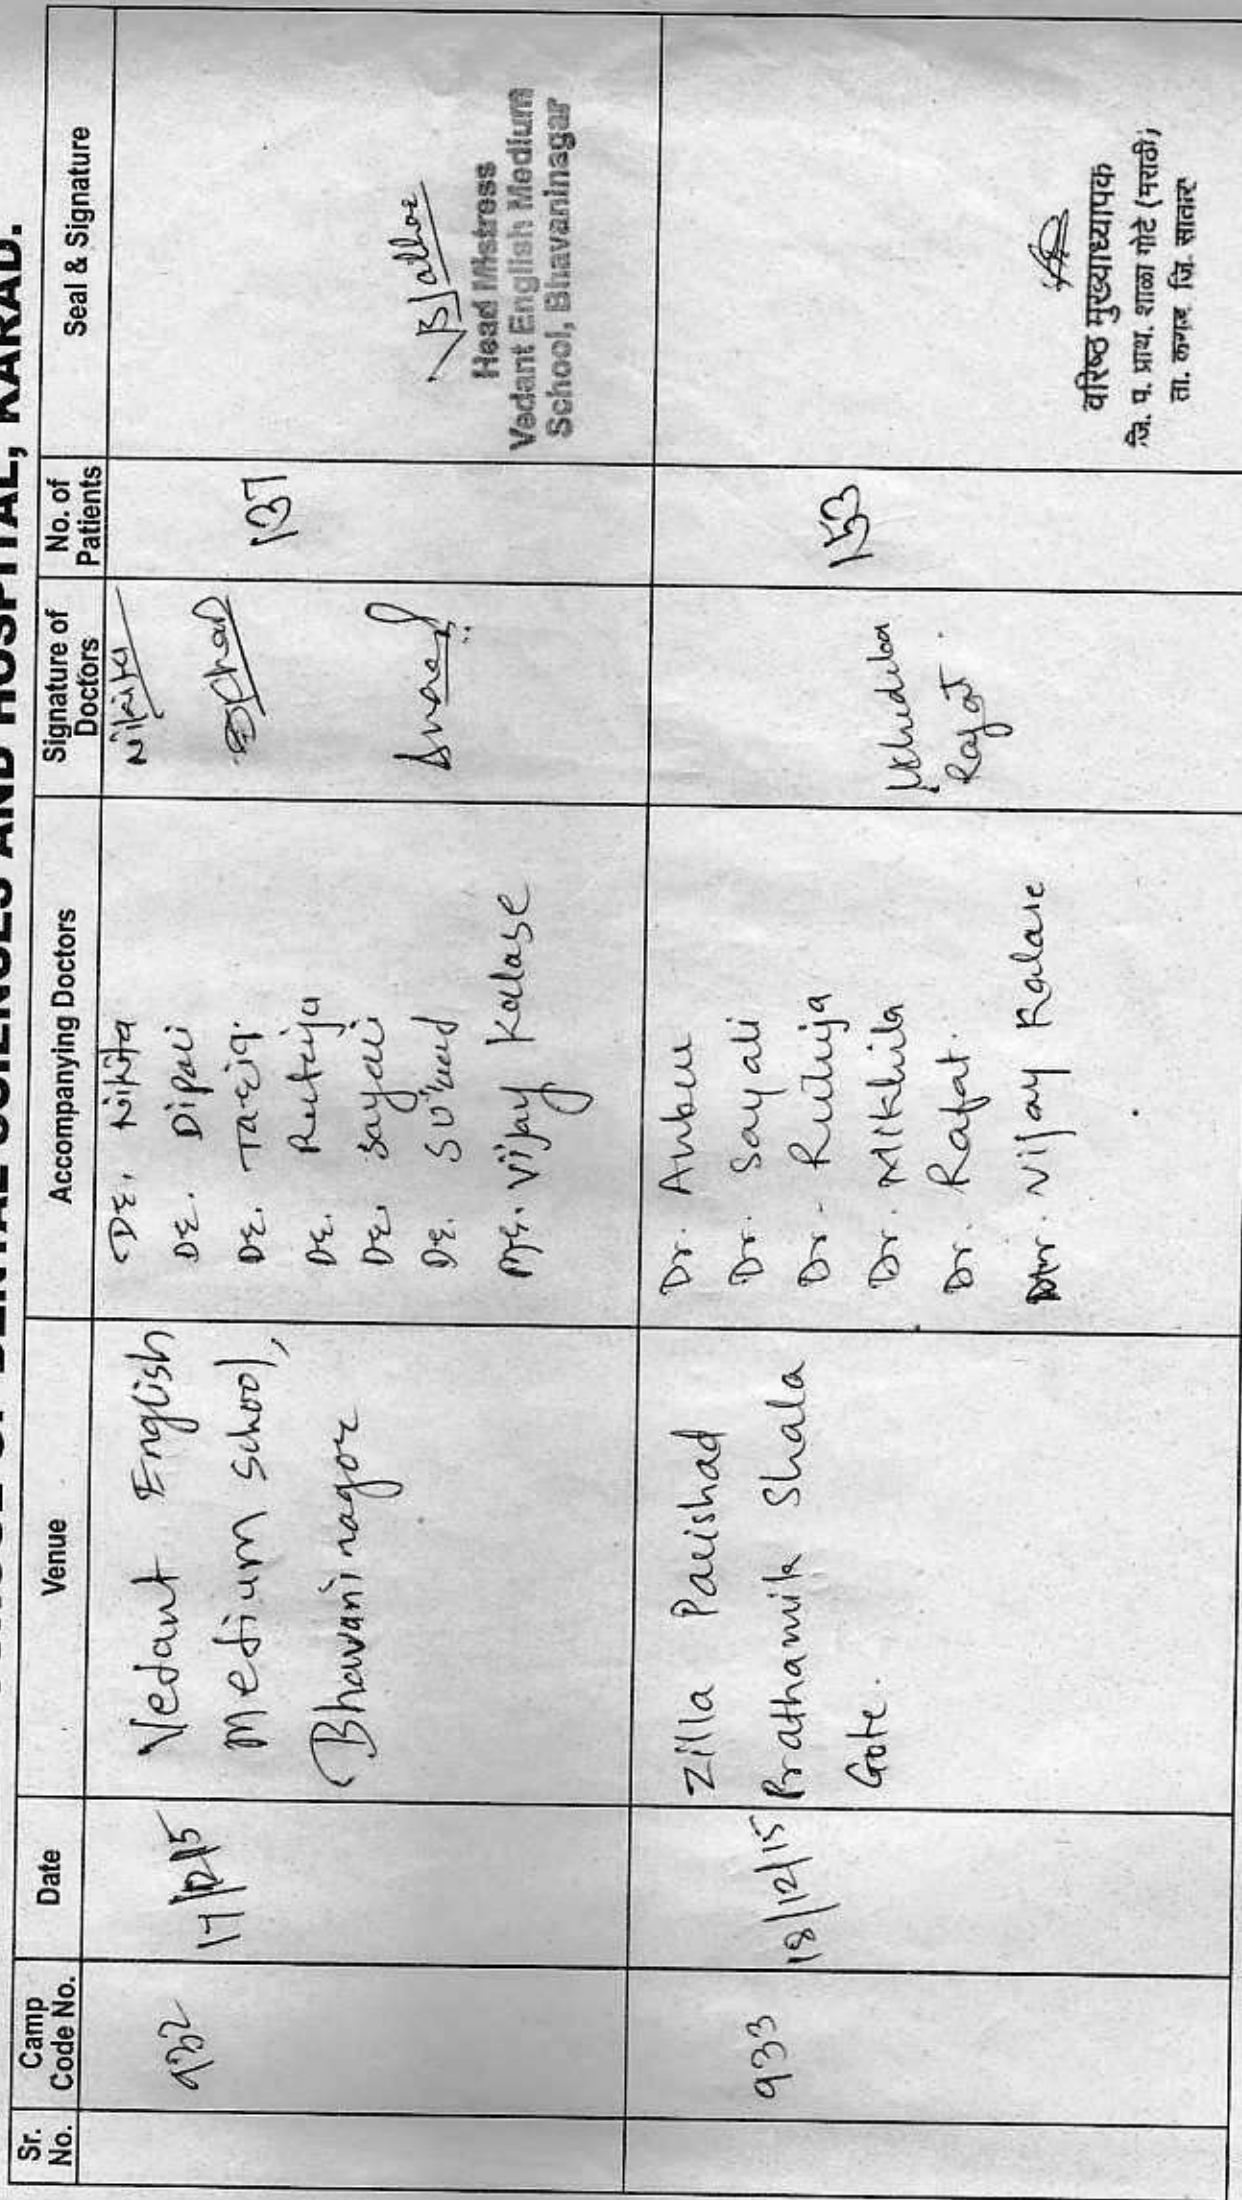 DENTAL SCIENCES AND HOSPITAL, KARAD.
Sr. No.
Camp Code No.
Date
Venue
Accompanying Doctors
Signature of Doctors
No. of Patients
Seal & Signature
932
17/12/15
Vedant English
Medium School,
Bhavaninagar
Dr. Nikita
Dr. Dipali
Dr. Tariq.
Dr. Rutuja
Dr. Sayali
Dr.
Mr. Vijay Kalase
Nikita
137
Head Mistress
Vedant English Medium
School, Bhavaninagar
933
18/12/15
Zilla Parishad
Prathamik Shala
Gote.
Dr. Anbu
Dr. Sayali
Dr. Rutuja
Dr. Mikhila
Dr. Rafat.
Mr. Vijay Kalase
Rafat.
153
वरिष्ठ मुख्याध्यापक
जि. प. प्राथ. शाळा गोटे (मराठी)
ता. कराड जि. सातारा